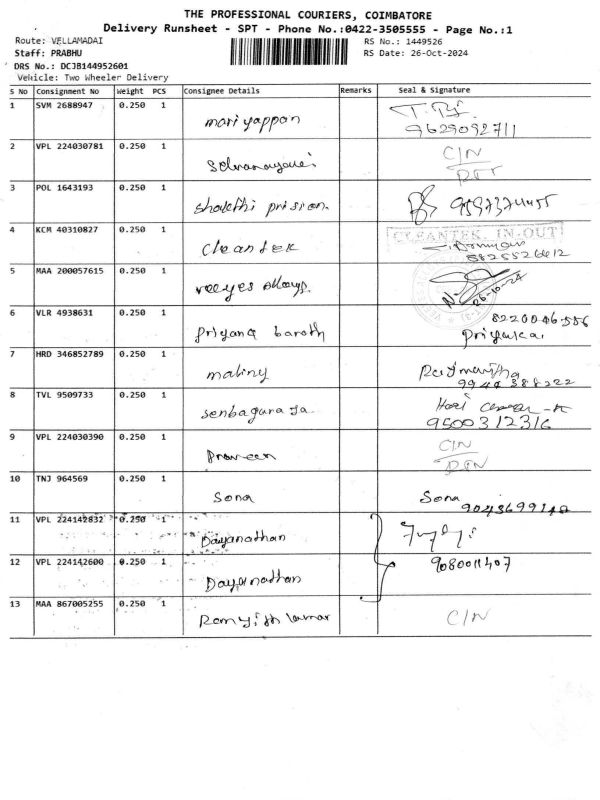 THE PROFESSIONAL COURIERS, COIMBATORE
Delivery Runsheet - SPT - Phone No.:0422-3505555 - Page No.:1
Route: VELLAMADAI RS No.: 1449526
Staff: PRABHU RS Date: 26-Oct-2024
DRS No.: DCJB144952601
Vehicle: Two Wheeler Delivery
S No Consignment No Weight PCS Consignee Details Remarks Seal & Signature
1 SVM 2688947 0.250 1 mariyappan
9629092711
2 VPL 224030781 0.250 1 C/N
3 POL 1643193 0.250 1 Shakthi prision
4 KCM 40310827 0.250 1 Cleantek CLEANTEK, IN-OUT
8825526412
5 MAA 200057615 0.250 1 veeyes Alloys 26-10-24
6 VLR 4938631 0.250 1 priyanga barath 8220046556
7 HRD 346852789 0.250 1 maliny
9944388222
8 TVL 9509733 0.250 1 senbagara Ja Hari
9500312316
9 VPL 224030390 0.250 1 Praveen C/N
10 TNJ 964569 0.250 1 Sona Sona
11 VPL 224142832 0.250 1 Dayanathan
12 VPL 224142600 0.250 1 Dayanathan 9080011407
13 MAA 867005255 0.250 1 C/N